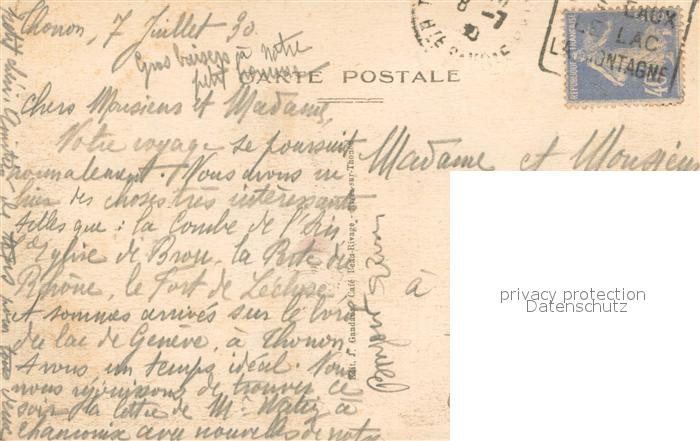 Thonon, 7 Juillet 30.
Gros baisers à notre
petit
CARTE POSTALE
8 -7
EAUX
LE LAC
LA MONTAGNE
REPUBLIQUE FRANÇAISE
Chers Monsieur et Madame,
Votre voyage se poursuit
normalement. Nous avons vu
hier des choses très intéressantes
telles que : la Combe de l'Ain
l'Eglise de Brou, la Perte du
Rhône, le Fort de l'Ecluse
et sommes arrivés sur le bord
du lac de Genève, à Thonon.
Avons un temps idéal. Nous
nous réjouissons de trouver ce
soir la lettre de Mr à
Chamonix avec nouvelles de notre
Madame et Monsieur
à
Edit. J. Café Beau-Rivage - Thonon
privacy protection
Datenschutz